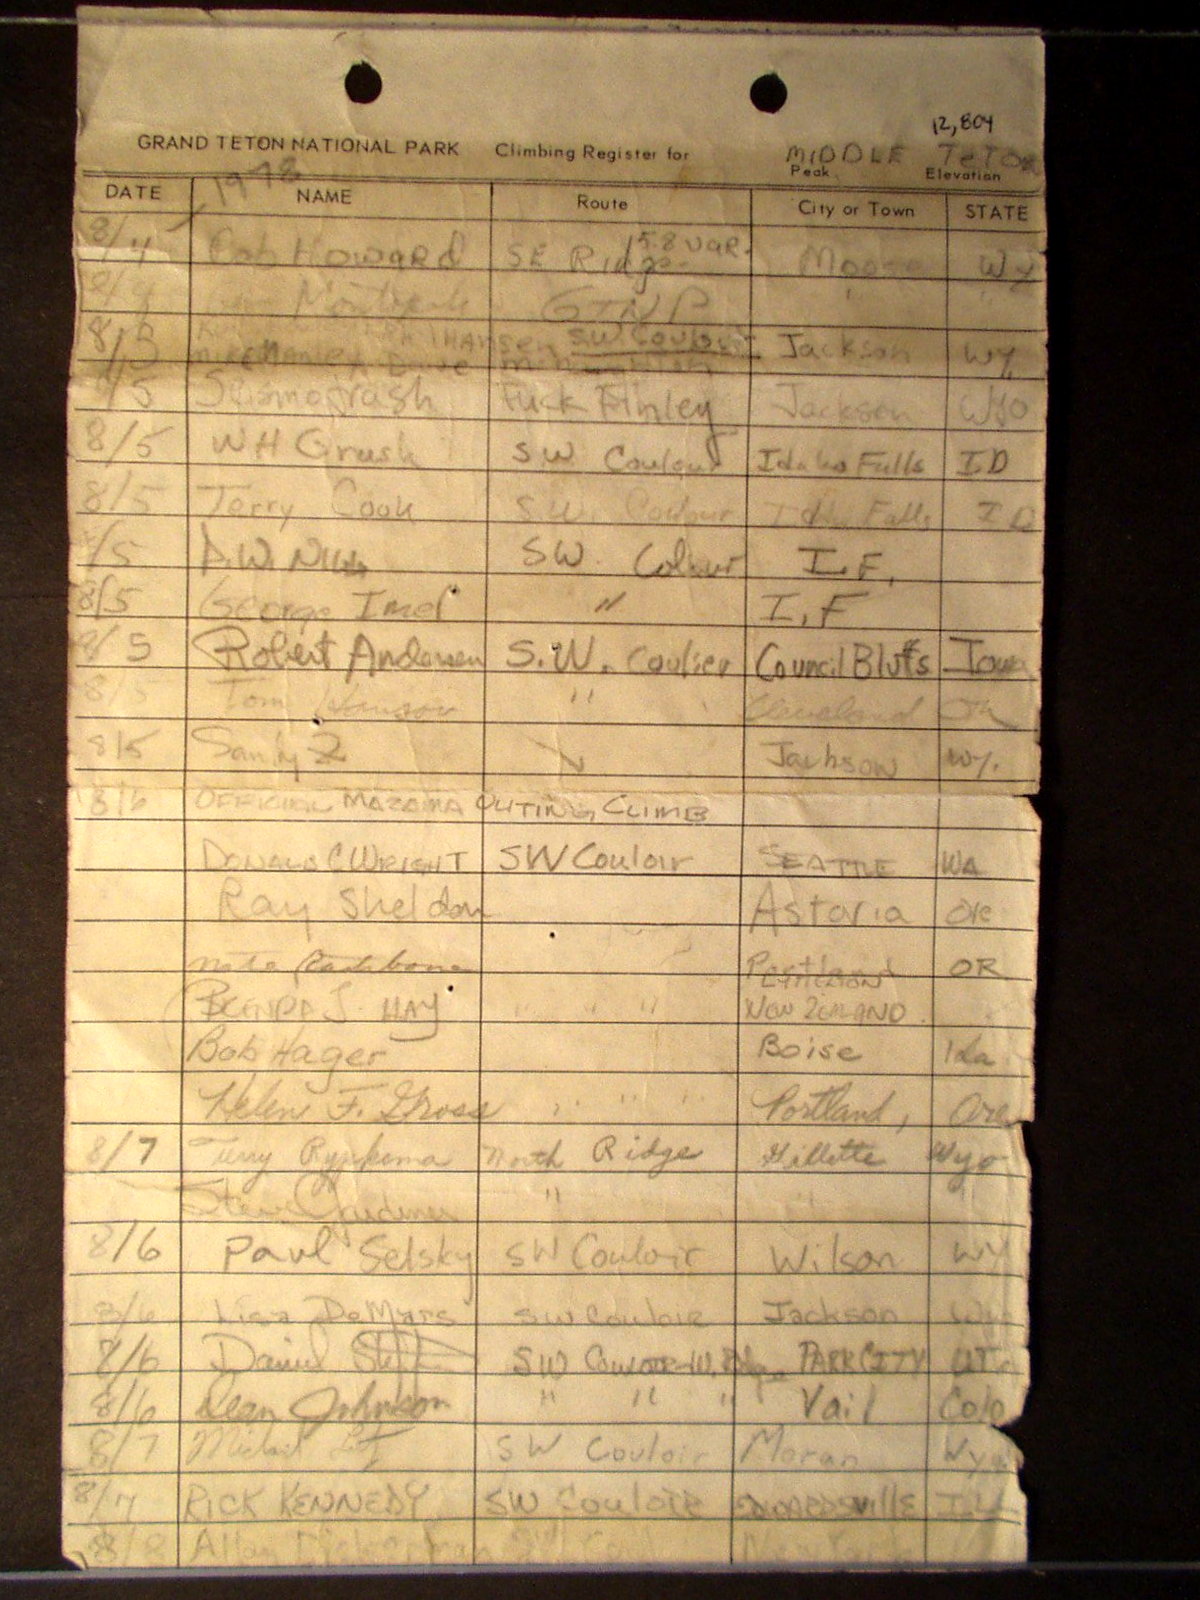 12,804
GRAND TETON NATIONAL PARK Climbing Register for MIDDLE TETON
Peak Elevation
1978
DATE NAME Route City or Town STATE
8/4 Bob Howard SE Ridge 5.8 var. Moose Wy
8/4 GTNP " "
8/5 Hansen S.W. Couloir Jackson Wy.
Mike Manley Dave
8/5 Seismogrash Fuck Finley Jackson Wyo
8/5 WH Grush SW Coulour Idaho Falls ID
8/5 Terry Cook S.W. Coulour Idaho Falls ID
8/5 SW. Colour I.F.
8/5 George Imel " I.F
8/5 Robert Andersen S.W. Coulier Council Bluffs Iowa
8/5 Tom Hanson " Cleveland Oh
8/5 Sandy Z Jackson Wy.
8/6 OFFICIAL MAZAMA OUTING CLIMB
DONALD C WRIGHT SW Couloir SEATTLE WA
Ray Sheldon Astoria Ore
PORTLAND OR
BRENDA J. HAY " " " NEW ZEALAND
Bob Hager Boise Ida
Helen F. Gross " " " Portland, Ore
8/7 Terry Rypkema North Ridge Gillette Wyo
Steve Gardiner " "
8/6 Paul Selsky SW Couloir Wilson WY
8/6 Lisa DeMars SW Couloir Jackson Wy
8/6 SW Couloir-W. Ridge PARK CITY UT
8/6 Dean Johnson " " " Vail Colo
8/7 SW Couloir Moran Wyo
8/7 RICK KENNEDY SW Couloir EDWARDSVILLE ILL
8/8 Allan New York